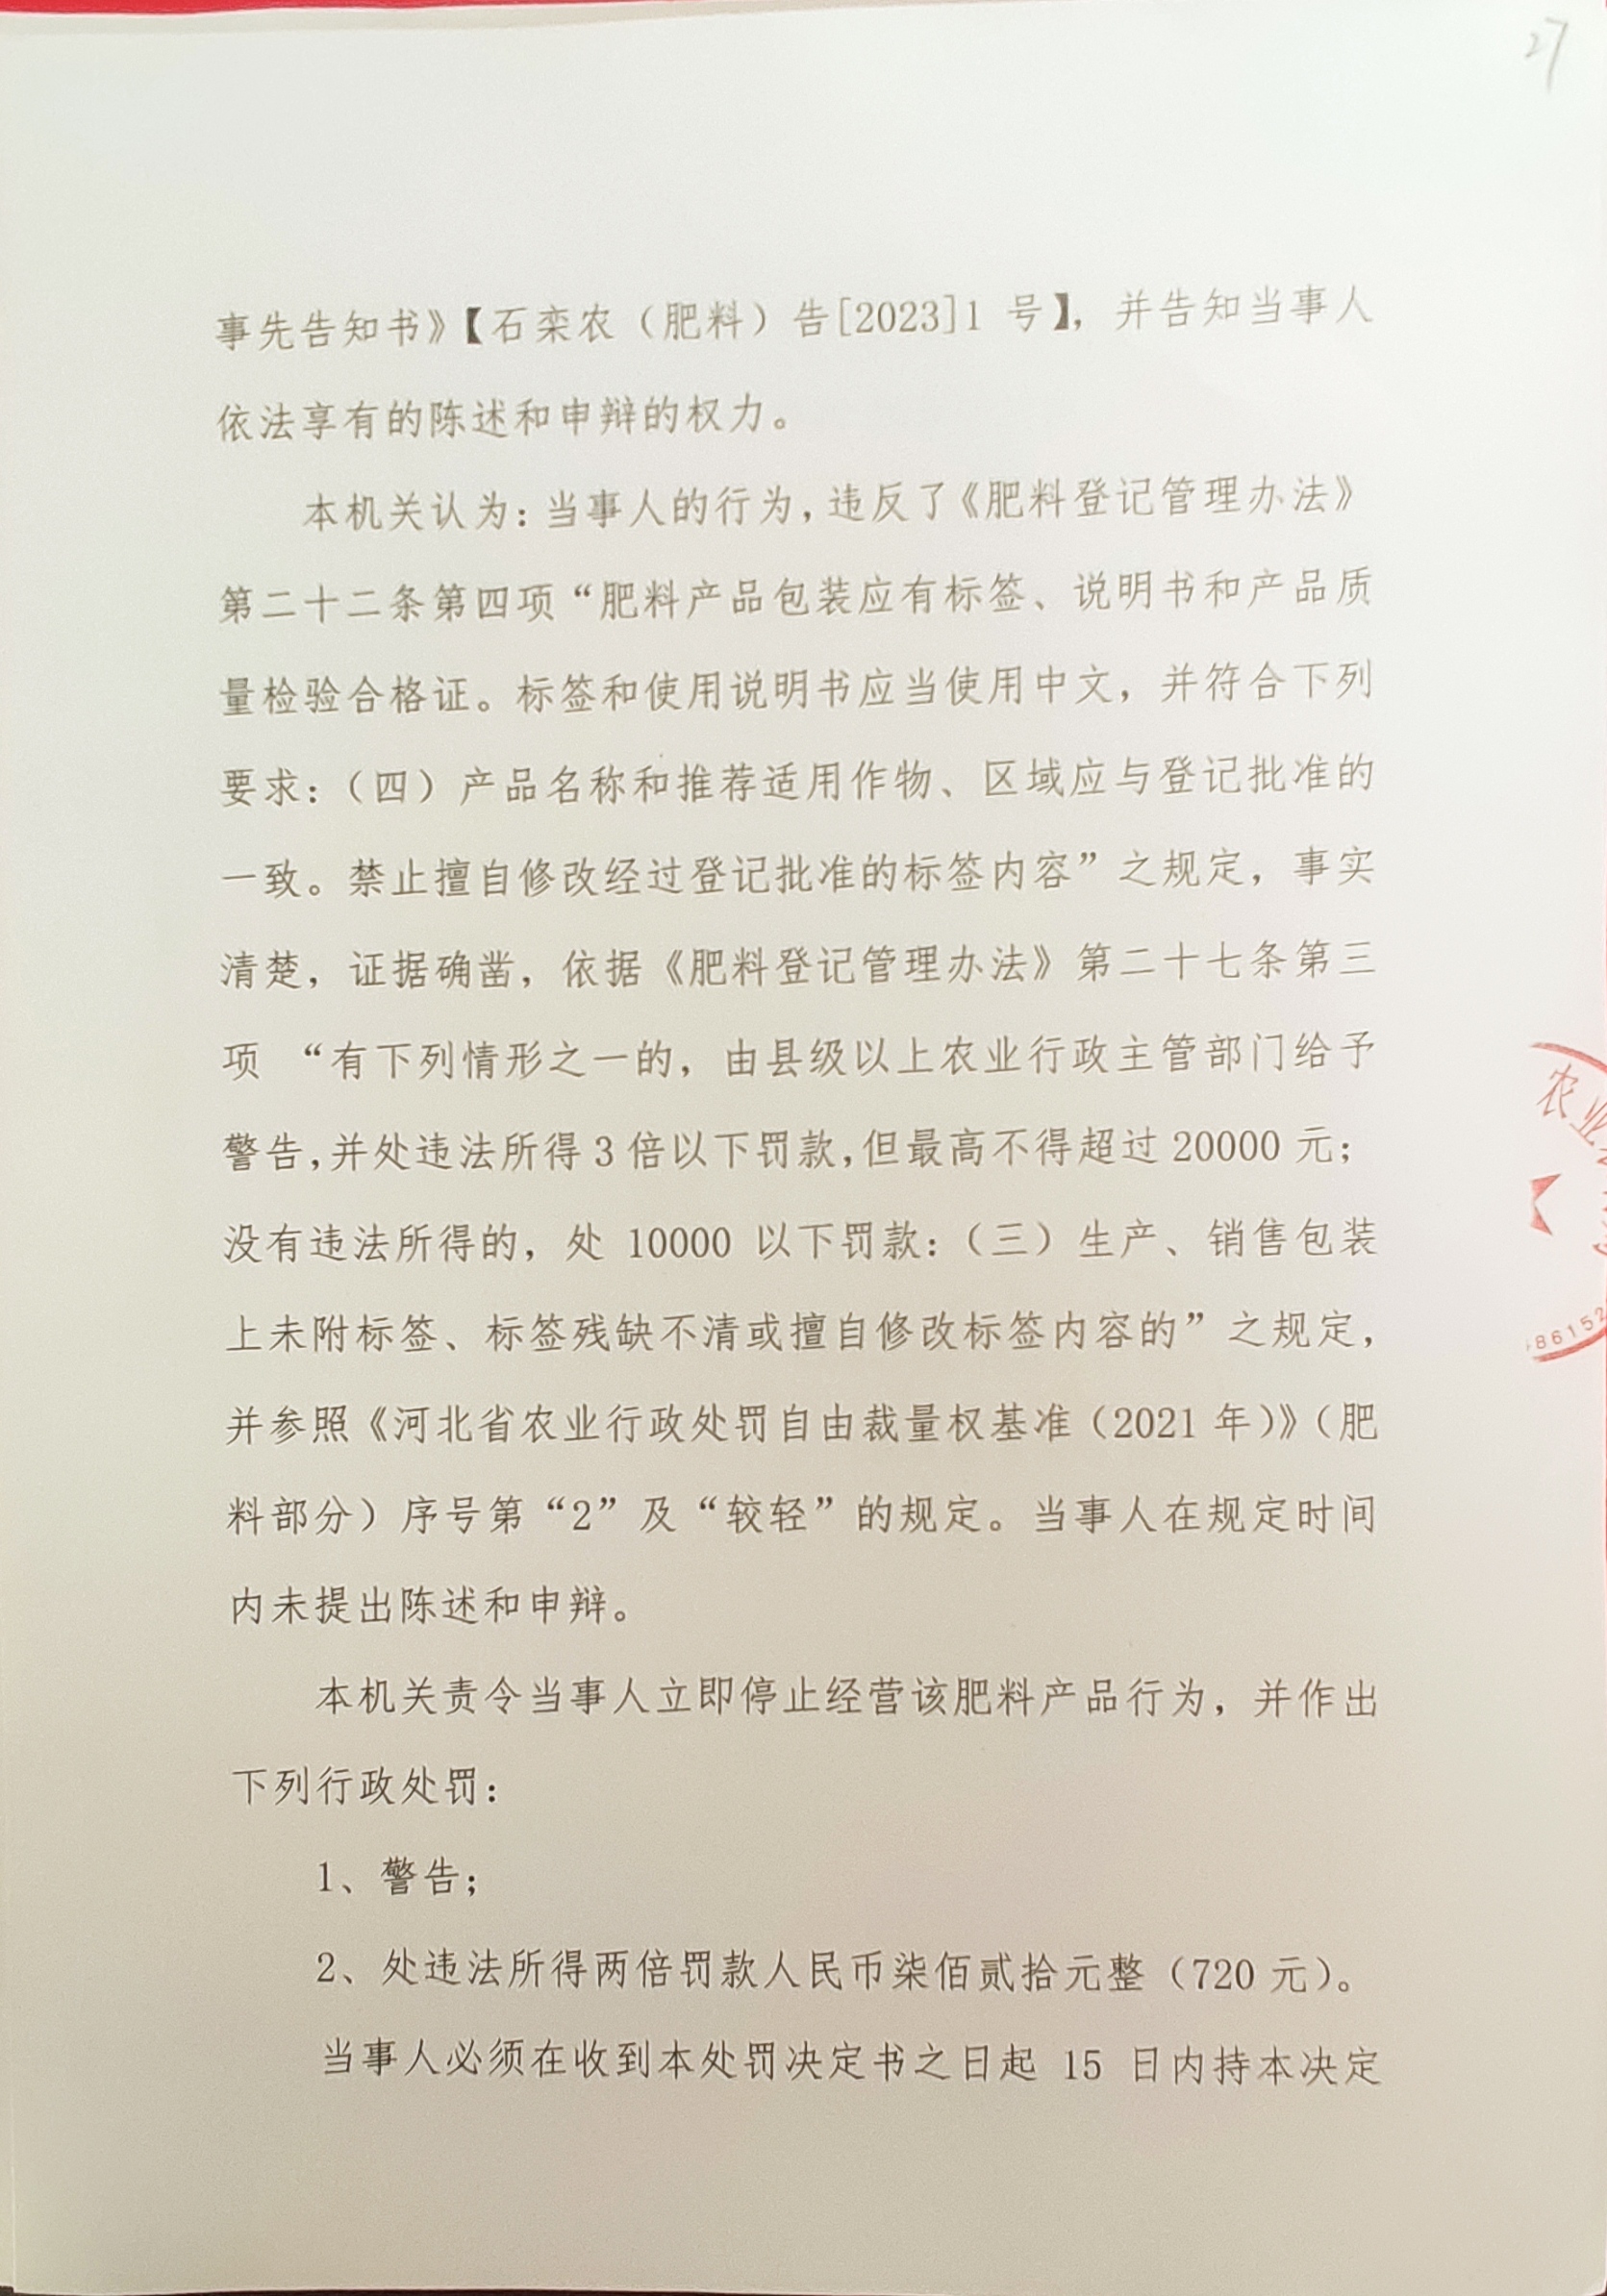 27
事先告知书》【石栾农（肥料）告[2023]1 号】，并告知当事人
依法享有的陈述和申辩的权力。
本机关认为：当事人的行为，违反了《肥料登记管理办法》
第二十二条第四项“肥料产品包装应有标签、说明书和产品质
量检验合格证。标签和使用说明书应当使用中文，并符合下列
要求：（四）产品名称和推荐适用作物、区域应与登记批准的
一致。禁止擅自修改经过登记批准的标签内容”之规定，事实
清楚，证据确凿，依据《肥料登记管理办法》第二十七条第三
项 “有下列情形之一的，由县级以上农业行政主管部门给予
警告，并处违法所得 3 倍以下罚款，但最高不得超过 20000 元；
没有违法所得的，处 10000 以下罚款：（三）生产、销售包装
上未附标签、标签残缺不清或擅自修改标签内容的”之规定，
并参照《河北省农业行政处罚自由裁量权基准（2021 年）》（肥
料部分）序号第“2”及“较轻”的规定。当事人在规定时间
内未提出陈述和申辩。
本机关责令当事人立即停止经营该肥料产品行为，并作出
下列行政处罚：
1、警告；
2、处违法所得两倍罚款人民币柒佰贰拾元整（720 元）。
当事人必须在收到本处罚决定书之日起 15 日内持本决定
农业
86152